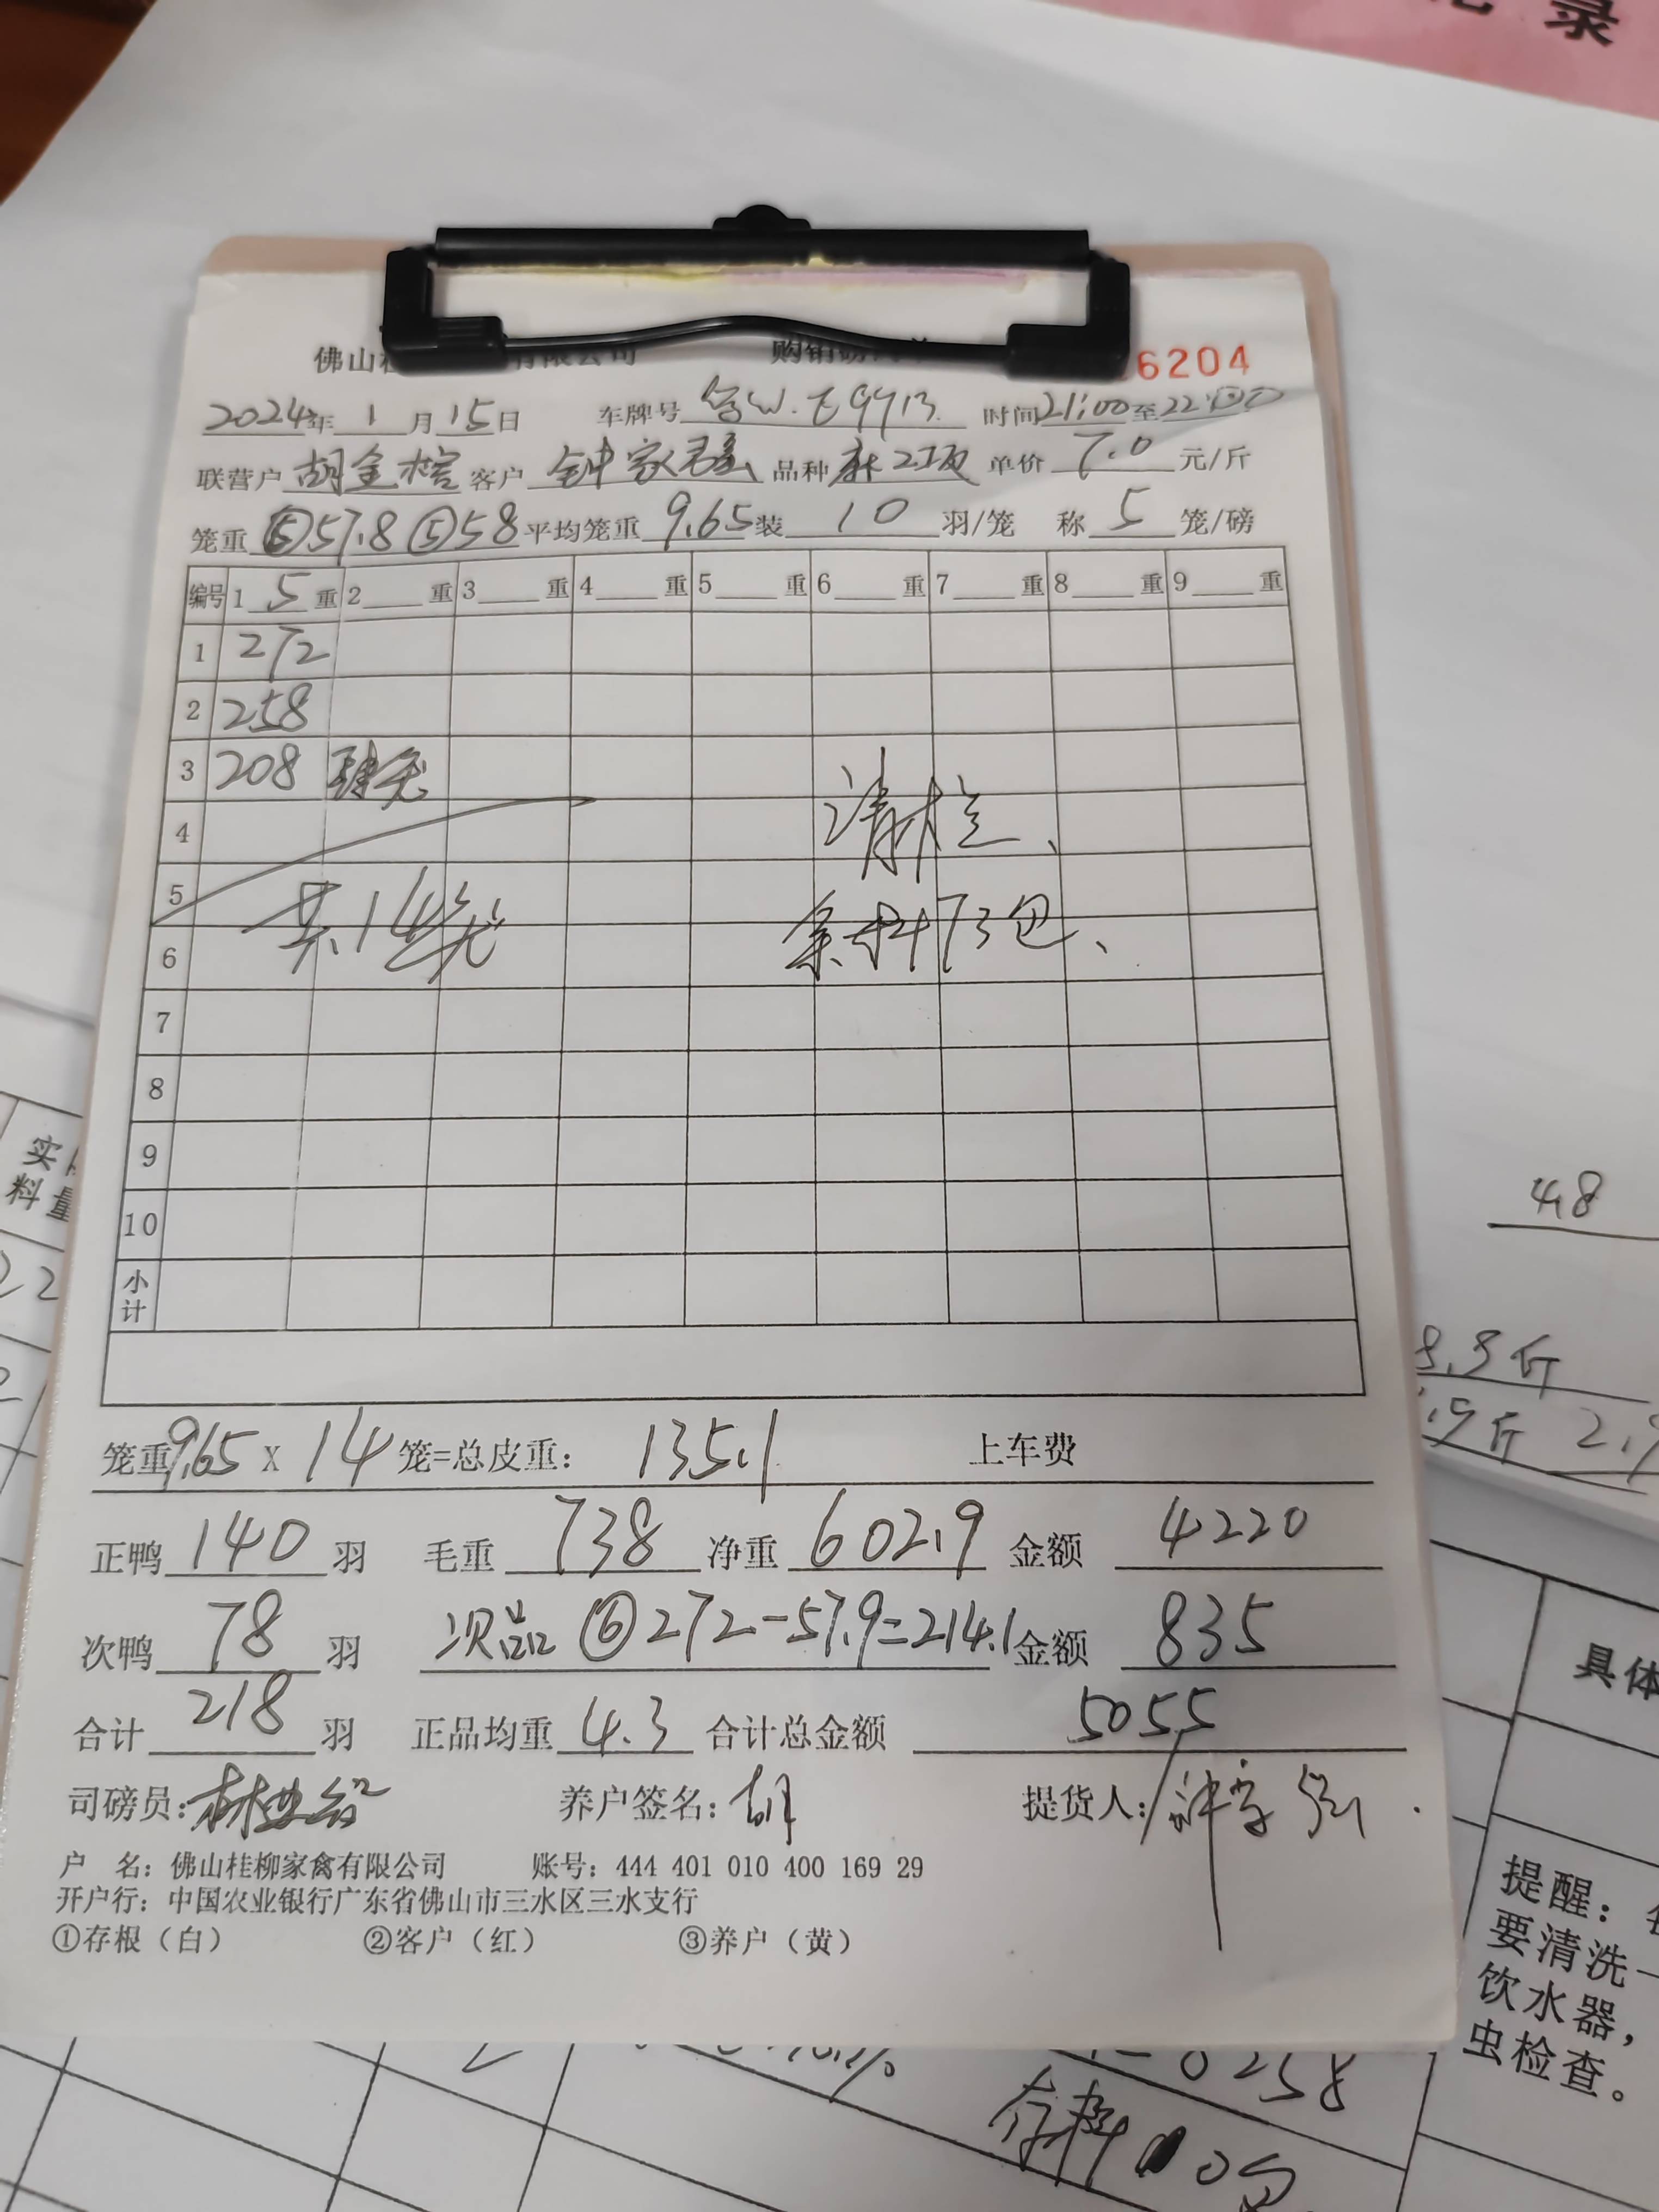 录
佛山桂 有限公司 购销磅 6204
2024年 1 月 15 日 车牌号 时间 21:00 至 22:00
联营户 胡金榕 客户 钟家强 品种 单价 7.0 元/斤
笼重 ⑥57.8 ⑤58 平均笼重 9.65 装 10 羽/笼 称 5 笼/磅
编号 1 5 重 2 重 3 重 4 重 5 重 6 重 7 重 8 重 9 重
1 272
2 258
3 208 肆笼
4 清栏、
5 共14笼
6 余料73包、
7
8
9
10
小计
笼重 9.65 x 14 笼=总皮重: 135.1 上车费
正鸭 140 羽 毛重 738 净重 602.9 金额 4220
次鸭 78 羽 次品 ⑥272-57.9=214.1 金额 835
合计 218 羽 正品均重 4.3 合计总金额 5055
司磅员: 养户签名: 胡 提货人:
户 名: 佛山桂柳家禽有限公司 账号: 444 401 010 400 169 29
开户行: 中国农业银行广东省佛山市三水区三水支行
①存根（白） ②客户（红） ③养户（黄）
实
料量
4.8
8.3斤
.9斤 2.9
具体
提醒:
要清洗一
饮水器,
虫检查。
0258
存料